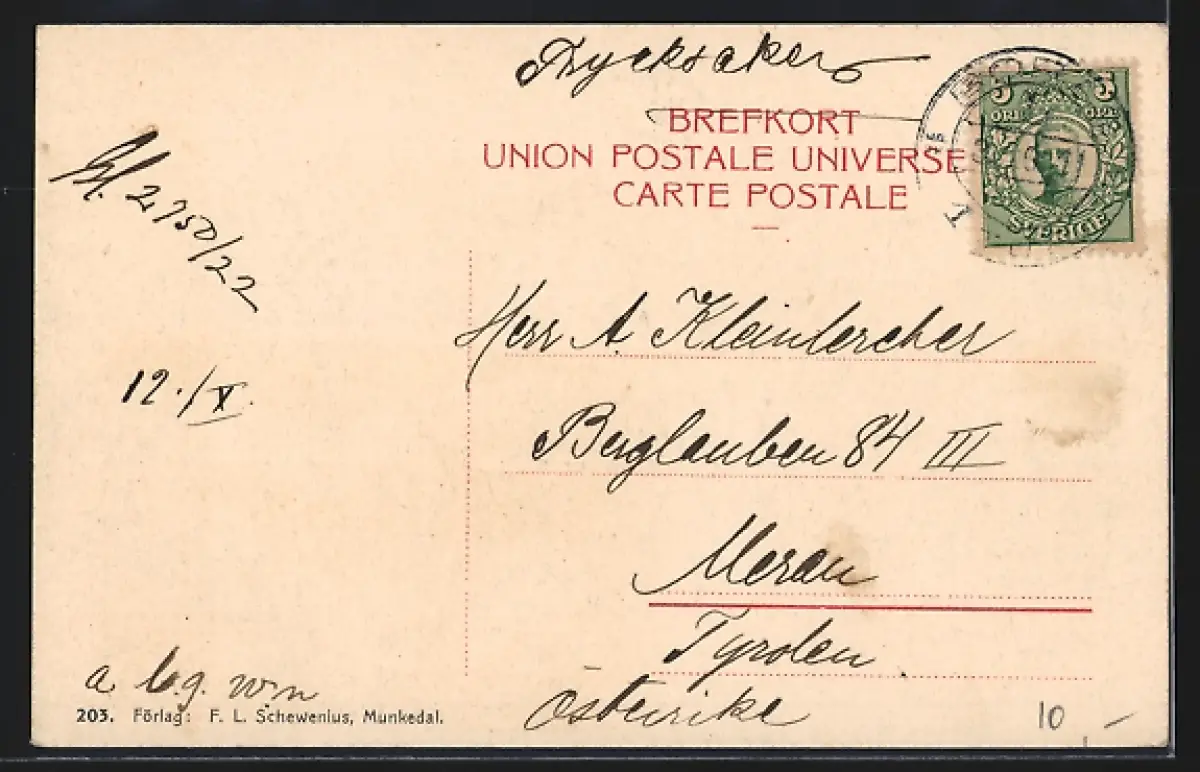 Trycksaker
BREFKORT
UNION POSTALE UNIVERSE
CARTE POSTALE
5 5
ÖRE ÖRE
SVERIGE
2750/22
12./X.
Herr A Kleinlercher
Berglauben 84 III
Meran
Tyrolen
Österrike
a.
203. Förlag: F. L. Schewenius, Munkedal.
10 -